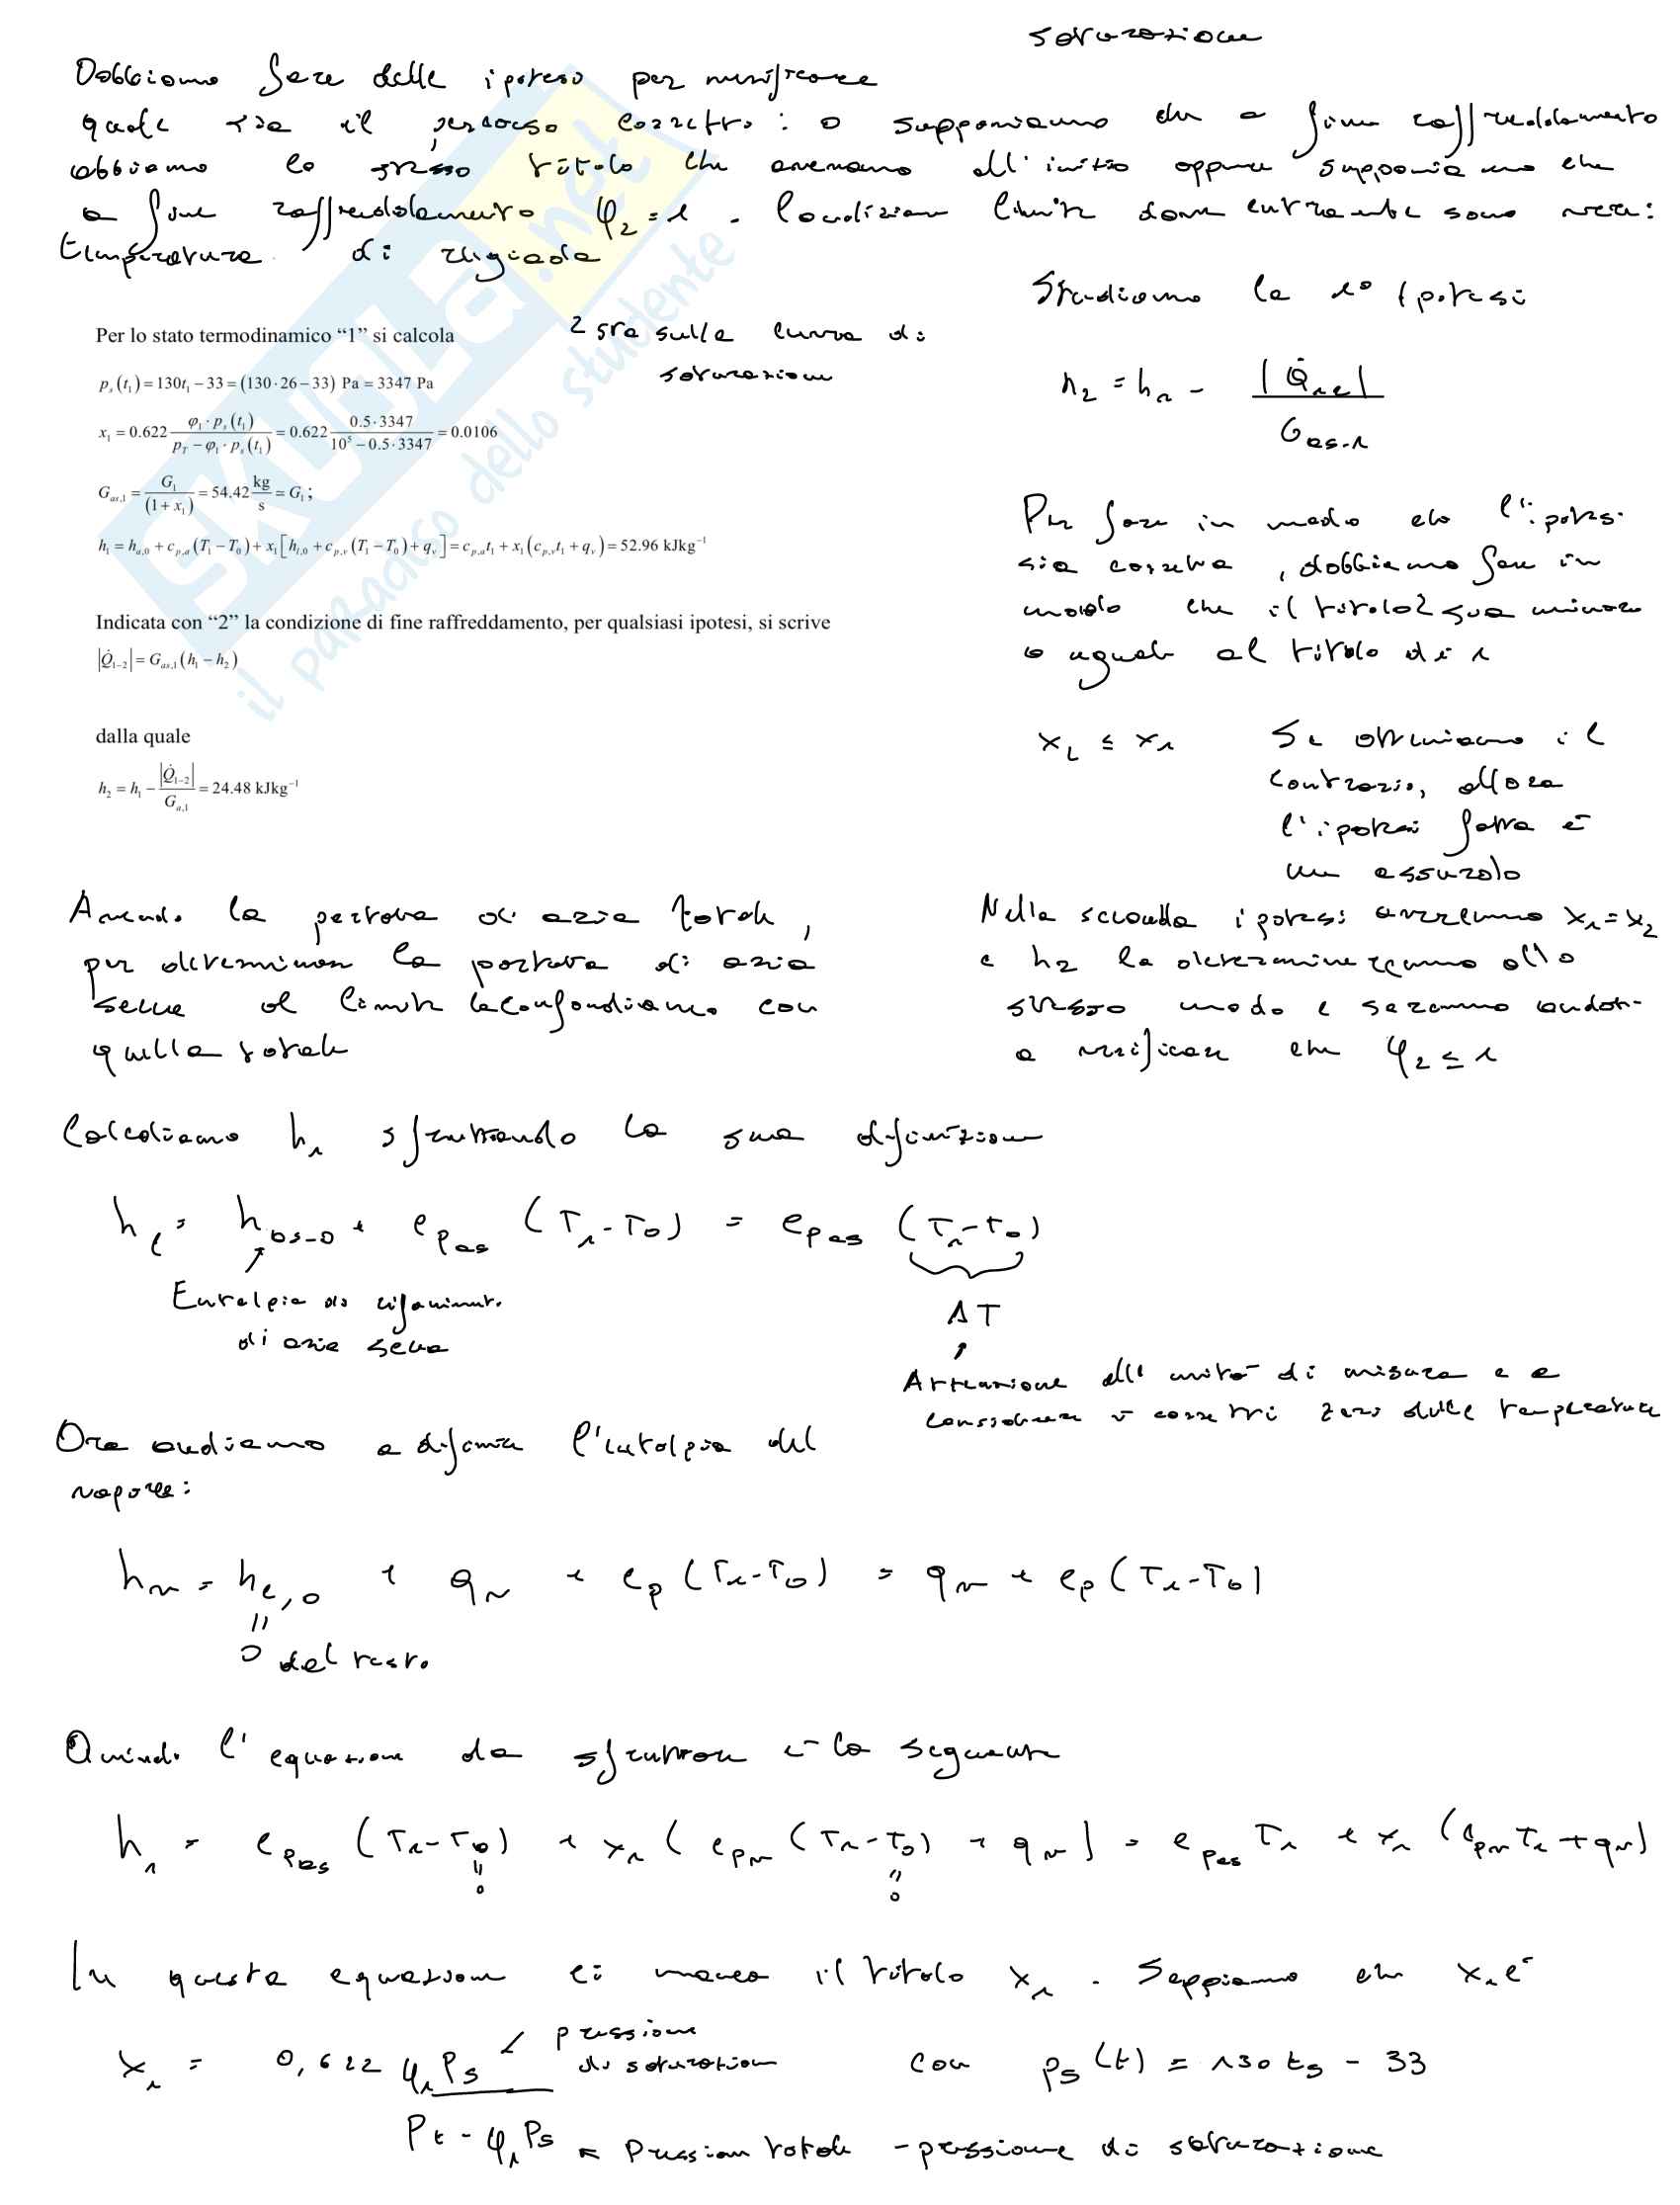 saturazione
Dobbiamo fare delle ipotesi per verificare
quale sia il percorso corretto: o supponiamo che a fine raffreddamento
abbiamo lo stesso titolo che avevamo all'inizio oppure supponiamo che
a fine raffreddamento φ₂ = 1 . Condizione limite dove entrambe sono vere:
temperatura di rugiada
Studiamo la 1° ipotesi
2 sta sulla curva di
saturazione
Per lo stato termodinamico “1” si calcola
p_s(t₁) = 130t₁ − 33 = (130·26 − 33) Pa = 3347 Pa
x₁ = 0.622 φ₁·p_s(t₁) / (p_T − φ₁·p_s(t₁)) = 0.622 0.5·3347 / (10⁵ − 0.5·3347) = 0.0106
G_as,1 = G₁ / (1 + x₁) = 54.42 kg/s = G₁ ;
h₁ = h_a,0 + c_p,a(T₁ − T₀) + x₁[h_l,0 + c_p,v(T₁ − T₀) + q_v] = c_p,a t₁ + x₁(c_p,v t₁ + q_v) = 52.96 kJkg⁻¹
Indicata con “2” la condizione di fine raffreddamento, per qualsiasi ipotesi, si scrive
|Q̇₁₋₂| = G_as,1(h₁ − h₂)
dalla quale
h₂ = h₁ − |Q̇₁₋₂| / G_a,1 = 24.48 kJkg⁻¹
h₂ = h₁ − |Q̇₁₂| / G_as,1
Per fare in modo che l'ipotesi
sia corretta, dobbiamo fare in
modo che il titolo 2 sia minore
o uguale al titolo di 1
x₂ ≤ x₁
Se otteniamo il
contrario, allora
l'ipotesi fatta è
un assurdo
Avendo la portata di aria totale,
per determinare la portata di aria
secca al limite la confondiamo con
quella totale
Nella seconda ipotesi avremmo x₁ = x₂
e h₂ la determineremmo allo
stesso modo e saremmo andati
a verificare che φ₂ ≤ 1
Calcoliamo h₁ sfruttando la sua definizione
h₁ = h_as-0 + c_pas (T₁ - T₀) = c_pas (T₁ - T₀)
Entalpia di riferiment.
di aria secca
ΔT
Attenzione all'unità di misura e a
considerare i corretti zero delle temperature
Ora andiamo a definire l'entalpia del
vapore:
h_v = h_l,0 + q_v + c_p (T₁ - T₀) = q_v + c_p (T₁ - T₀)
"
0 del testo
Quindi l'equazione da sfruttare è la seguente
h₁ = c_pas (T₁ - T₀) + x₁ (c_pv (T₁ - T₀) + q_v) = c_pas T₁ + x₁ (c_pv T₁ + q_v)
" "
0 0
In questa equazione ci manca il titolo x₁ . Sappiamo che x₁ è
x₁ = 0,622 φ₁ Ps / (Pt - φ₁ Ps)
pressione
di saturazione
con ps (t) = 130 ts - 33
Pressione totale - pressione di saturazione
SKUOLA.net
il paradiso dello studente